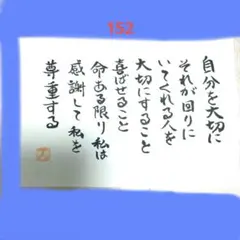 153
自分を大切に
それが回りに
いてくれる人を
大切にすること
喜ばせること
命ある限り私は
感謝して私を
尊重する